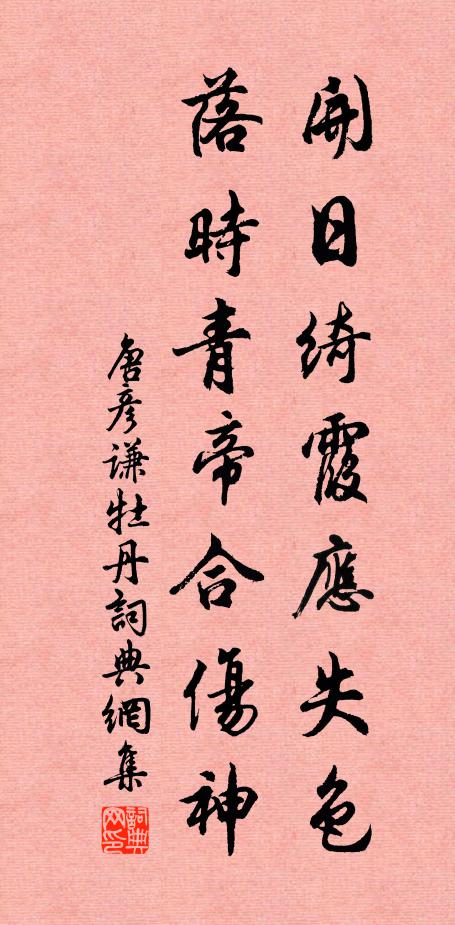 開日綺霞應失色
落時青帝合傷神
唐彥謙牡丹詞典網集
詞典网印